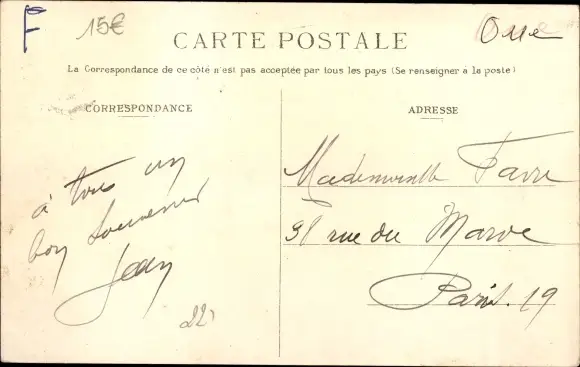 F
15€
CARTE POSTALE
La Correspondance de ce côté n'est pas acceptée par tous les pays (Se renseigner à la poste)
CORRESPONDANCE
à tous un
bon souvenir
Jean
22
ADRESSE
Mademoiselle Favre
rue du Maroc
Paris. 19